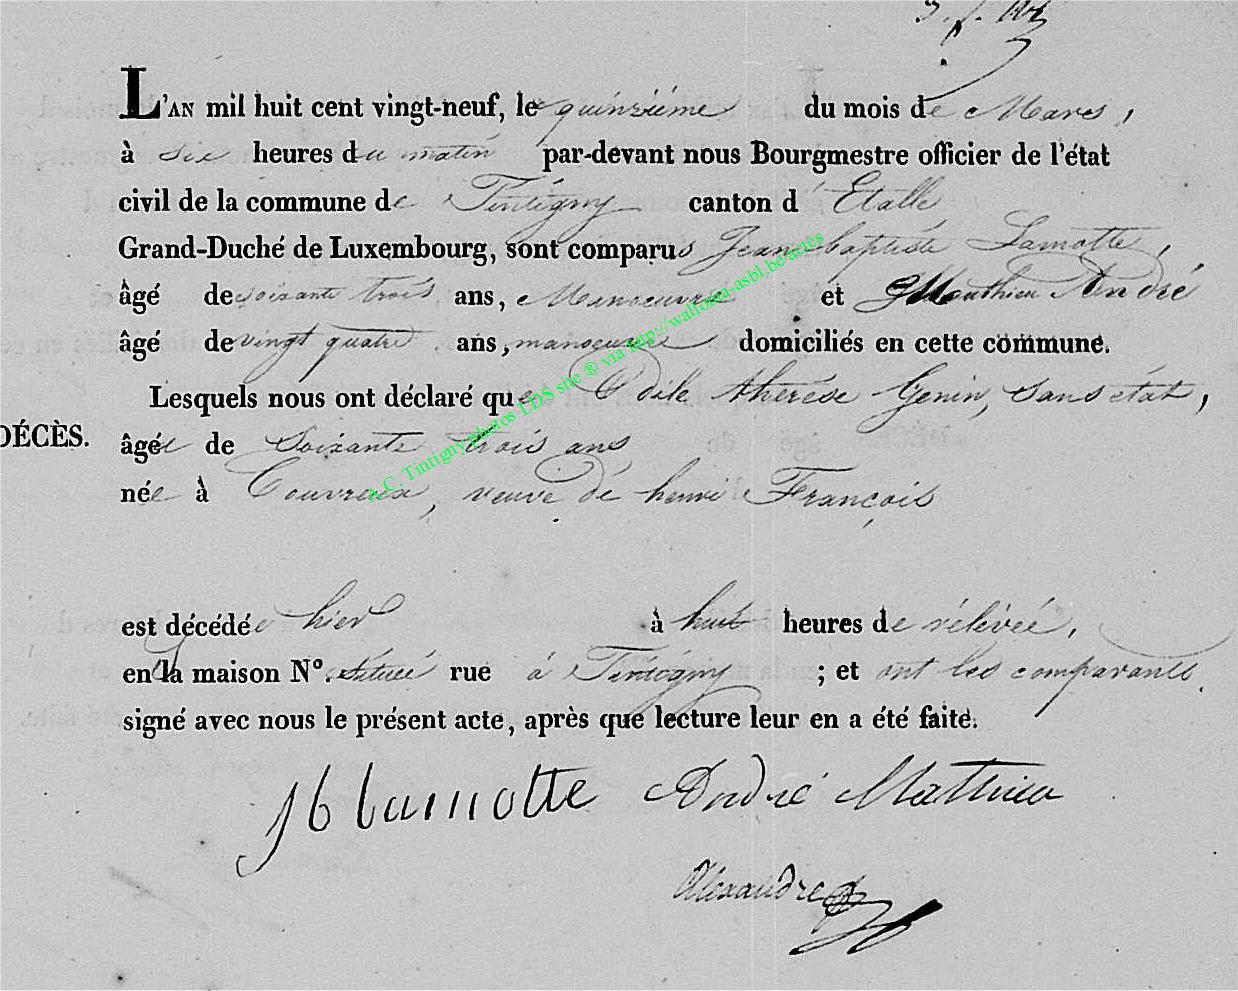 L'AN mil huit cent vingt-neuf, le quinziéme du mois de Mars,
à six heures du matin par-devant nous Bourgmestre officier de l'état
civil de la commune de Tintigny canton d Etalle
Grand-Duché de Luxembourg, sont comparus Jean baptiste Lamotte,
âgé de soixante trois ans, Manoeuvre et Mathieu André
âgé de vingt quatre ans, manoeuvre domiciliés en cette commune.
Lesquels nous ont déclaré que Odile thérése Genin, sans état,
DÉCÈS. âgée de soixante trois ans
née à Couvreux, veuve de henri François
est décédée hier à huit heures de rélévée,
en la maison N°. située rue à Tintigny ; et ont les comparants
signé avec nous le présent acte, après que lecture leur en a été faite.
JB Lamotte André Mathieu
Alexandre
A.C. Tintigny photos LDS site ® via http://wallonia-asbl.be/actes